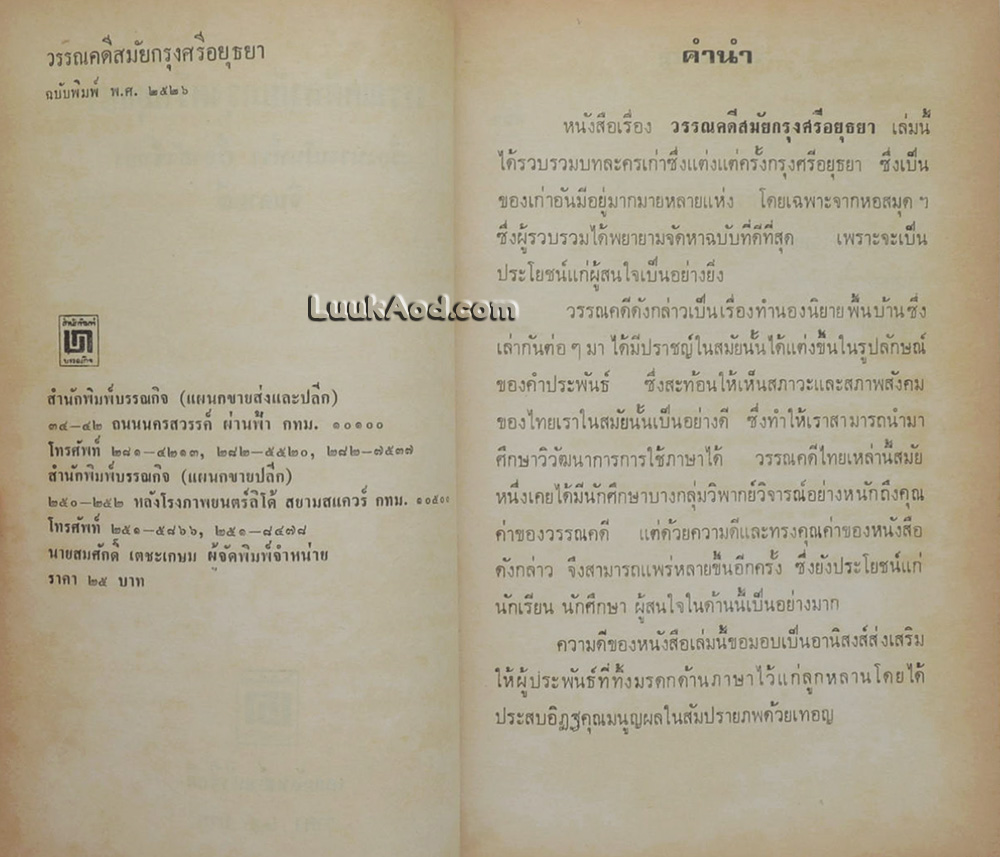 วรรณคดีสมัยกรุงศรีอยุธยา
ฉบับพิมพ์ พ.ศ. ๒๕๒๖
สำนักพิมพ์
บรรณกิจ
สำนักพิมพ์บรรณกิจ (แผนกขายส่งและปลีก)
๓๔–๔๒ ถนนนครสวรรค์ ผ่านฟ้า กทม. ๑๐๑๐๐
โทรศัพท์ ๒๘๑–๔๒๑๓, ๒๘๒–๕๕๒๐, ๒๘๒–๗๕๓๗
สำนักพิมพ์บรรณกิจ (แผนกขายปลีก)
๒๕๐–๒๕๒ หลังโรงภาพยนตร์ลิโด้ สยามสแควร์ กทม. ๑๐๕๐๐
โทรศัพท์ ๒๕๑–๕๘๖๖, ๒๕๑–๘๔๗๘
นายสมศักดิ์ เตชะเกษม ผู้จัดพิมพ์จำหน่าย
ราคา ๒๕ บาท
LuukAod.com
คำนำ
หนังสือเรื่อง วรรณคดีสมัยกรุงศรีอยุธยา เล่มนี้
ได้รวบรวมบทละครเก่าซึ่งแต่งแต่ครั้งกรุงศรีอยุธยา ซึ่งเป็น
ของเก่าอันมีอยู่มากมายหลายแห่ง โดยเฉพาะจากหอสมุด ฯ
ซึ่งผู้รวบรวมได้พยายามจัดหาฉบับที่ดีที่สุด เพราะจะเป็น
ประโยชน์แก่ผู้สนใจเป็นอย่างยิ่ง
วรรณคดีดังกล่าวเป็นเรื่องทำนองนิยายพื้นบ้านซึ่ง
เล่ากันต่อ ๆ มา ได้มีปราชญ์ในสมัยนั้นได้แต่งขึ้นในรูปลักษณ์
ของคำประพันธ์ ซึ่งสะท้อนให้เห็นสภาวะและสภาพสังคม
ของไทยเราในสมัยนั้นเป็นอย่างดี ซึ่งทำให้เราสามารถนำมา
ศึกษาวิวัฒนาการการใช้ภาษาได้ วรรณคดีไทยเหล่านี้สมัย
หนึ่งเคยได้มีนักศึกษาบางกลุ่มวิพากย์วิจารณ์อย่างหนักถึงคุณ
ค่าของวรรณคดี แต่ด้วยความดีและทรงคุณค่าของหนังสือ
ดังกล่าว จึงสามารถแพร่หลายขึ้นอีกครั้ง ซึ่งยังประโยชน์แก่
นักเรียน นักศึกษา ผู้สนใจในด้านนี้เป็นอย่างมาก
ความดีของหนังสือเล่มนี้ขอมอบเป็นอานิสงส์ส่งเสริม
ให้ผู้ประพันธ์ที่ทิ้งมรดกด้านภาษาไว้แก่ลูกหลานโดยได้
ประสบอิฏฐคุณมนูญผลในสัมปรายภพด้วยเทอญ